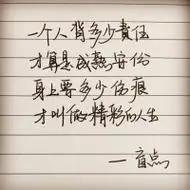 一个人背多少責任
才算是成熟安份
身上要多少伤痕
才叫做精彩的人生
— 盲点